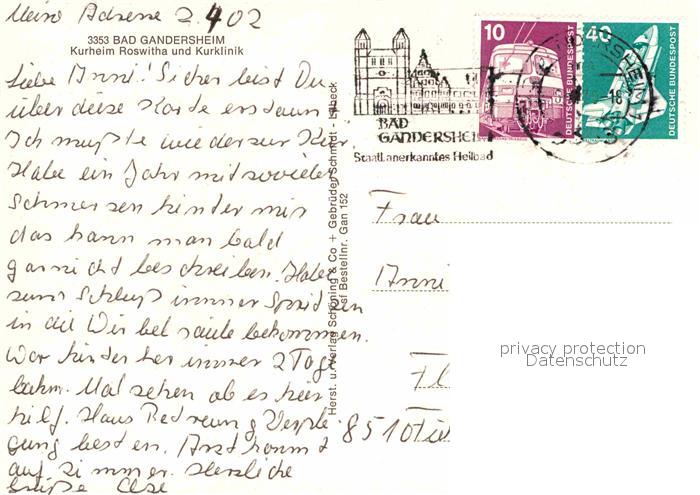 Meine Adresse Z.402
3353 BAD GANDERSHEIM
Kurheim Roswitha und Kurklinik
Liebe Anni! Sicher bist Du
über diese Karte erstaunt
Ich mußte wieder zur Kur.
Habe ein Jahr mit soviel
Schmerzen hinter mir
das kann man bald
garnicht beschreiben. Habe
zum Schluß immer Spritzen
in die Wirbelsäule bekommen.
War hinterher immer 2 Tage
lahm. Mal sehen ob es hier
hilf. Haus Betreuung Verpfle
gung besten. Arzt kommt
auf Zimmer. Herzliche
Grüße Else
Herst. u. Verlag Schöning & Co + Gebrüder Schmidt - Lübeck
Bestellnr. Gan 152
BAD
GANDERSHEIM
Staatl. anerkanntes Heilbad
10
DEUTSCHE BUNDESPOST
40
DEUTSCHE BUNDESPOST
Frau
Anni
8510 Fü
privacy protection
Datenschutz